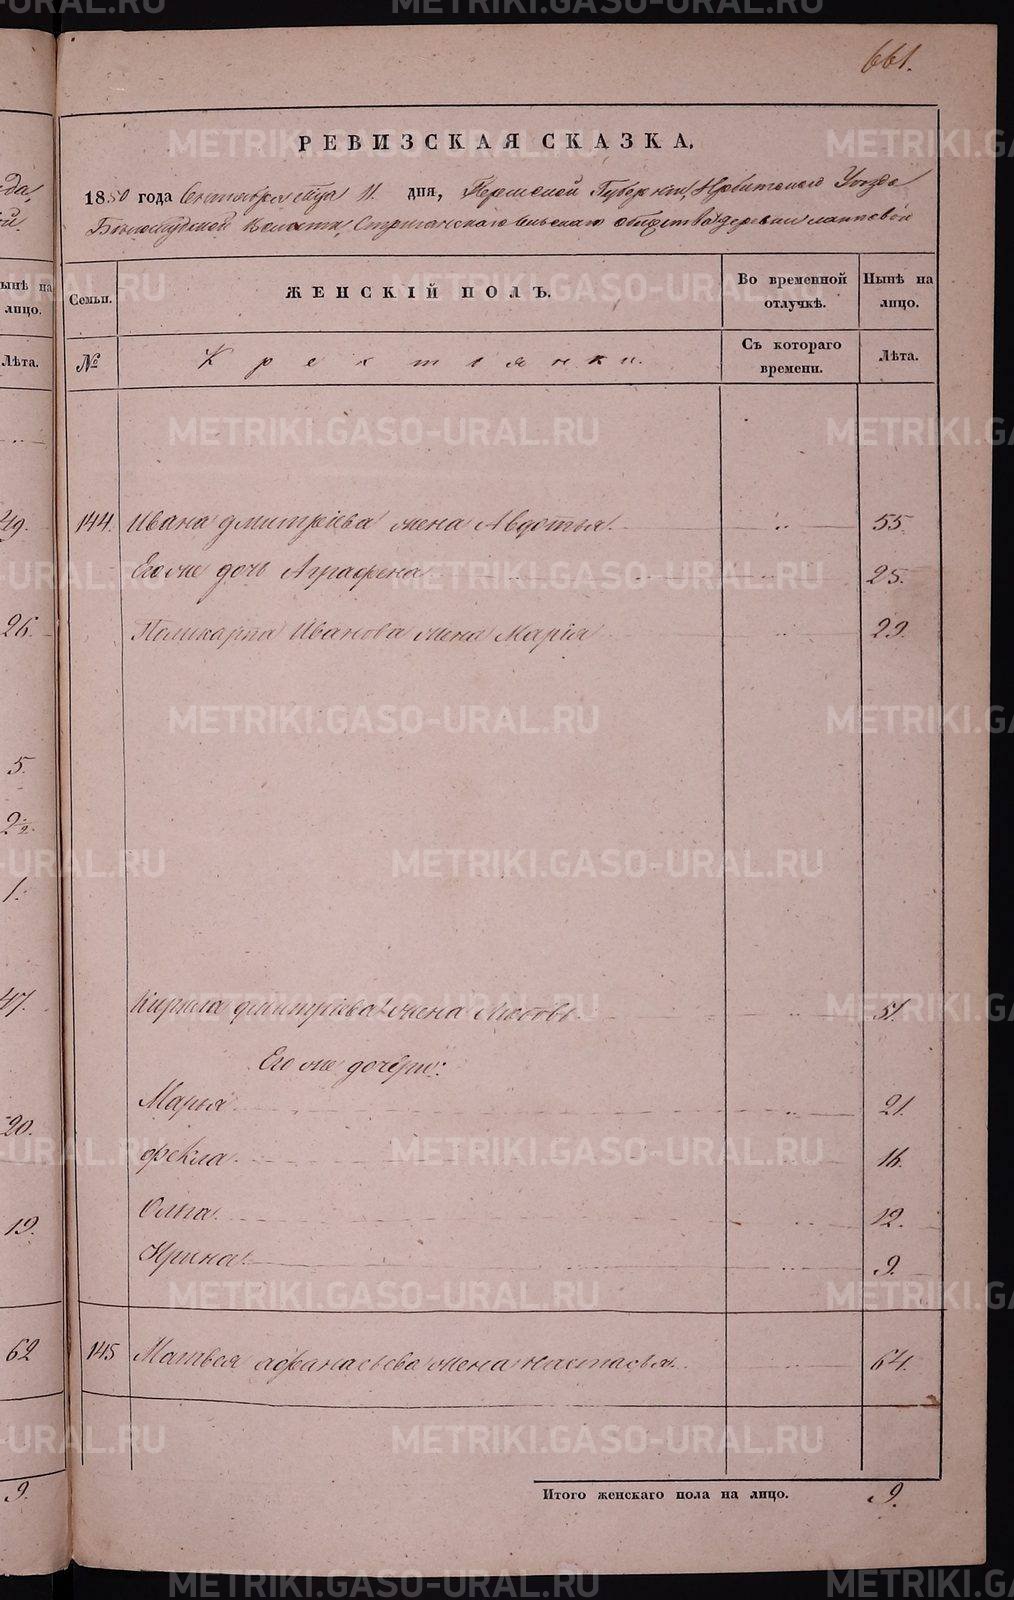 661.
РЕВИЗСКАЯ СКАЗКА.
1850 года Октября м-ца 11 дня, Пермской Губернии, Ирбитскаго Уезда
Белослудской Волости, Стриганскаго сельскаго общества деревни Лаптевой
Семьи. ЖЕНСКІЙ ПОЛЪ. Во временной отлучкѣ. Нынѣ на лицо.
№ Крестьянки. Съ котораго времени. Лѣта.
144. Ивана Дмитріева жена Авдотья 55.
Его же дочь Аграфена 25.
Поликарпа Иванова жена Марія 29.
Кирила Дмитріева жена Любовь 51.
Его же дочери:
Марья 21.
Фекла 16.
Олна 12.
Ирина 9.
145 Матвея Афанасьева жена Настасья 64.
Итого женскаго пола на лицо. 9.
ынѣ на
лицо.
Лѣта.
49.
26.
5.
2½.
1.
47.
20.
19.
62
9.
METRIKI.GASO-URAL.RU